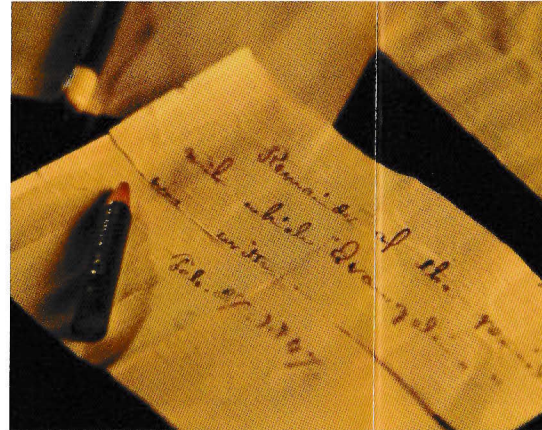 Remainder of the pencil
with which "Evangeline"
was written.
Feb. 27. 1847.